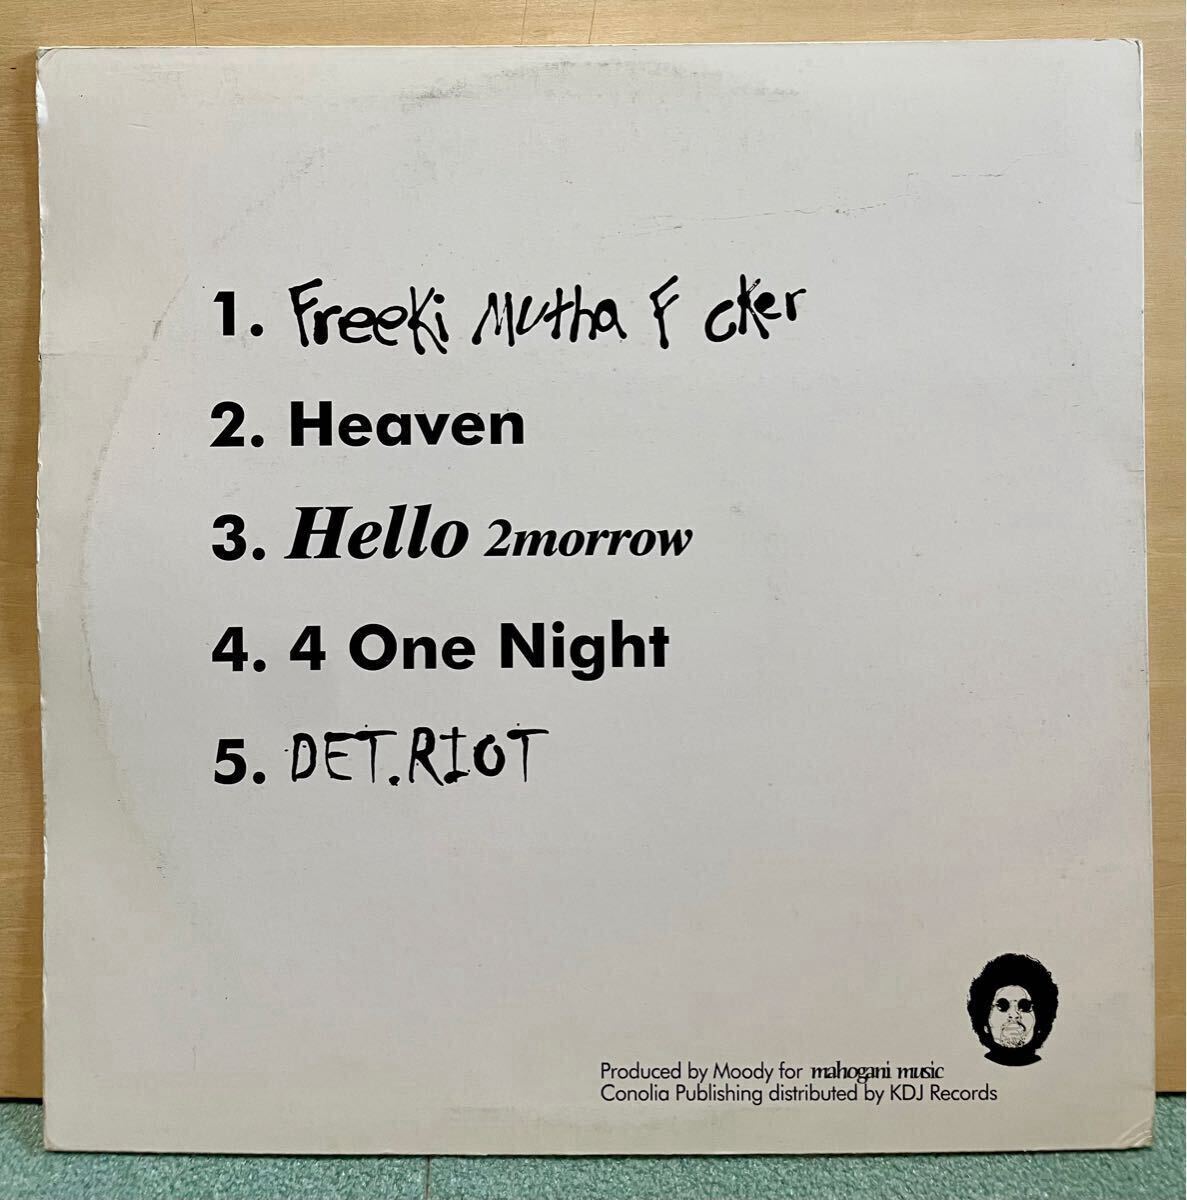 1. Freeki Mutha F cker
2. Heaven
3. Hello 2morrow
4. 4 One Night
5. DET.RIOT
Produced by Moody for mahogani music
Conolia Publishing distributed by KDJ Records